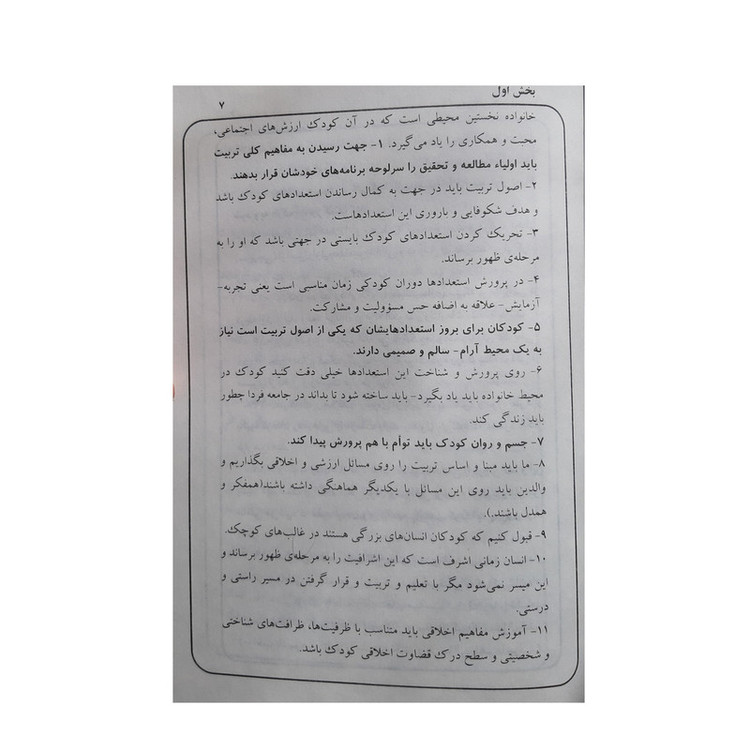 بخش اول
۷
خانواده نخستین محیطی است که در آن کودک ارزش‌های اجتماعی،
محبت و همکاری را یاد می‌گیرد. ۱- جهت رسیدن به مفاهیم کلی تربیت
باید اولیاء مطالعه و تحقیق را سرلوحه برنامه‌های خودشان قرار بدهند.
۲- اصول تربیت باید در جهت به کمال رساندن استعدادهای کودک باشد
و هدف شکوفایی و باروری این استعدادهاست.
۳- تحریک کردن استعدادهای کودک بایستی در جهتی باشد که او را به
مرحله‌ی ظهور برساند.
۴- در پرورش استعدادها دوران کودکی زمان مناسبی است یعنی تجربه-
آزمایش- علاقه به اضافه حس مسؤولیت و مشارکت.
۵- کودکان برای بروز استعدادهایشان که یکی از اصول تربیت است نیاز
به یک محیط آرام- سالم و صمیمی دارند.
۶- روی پرورش و شناخت این استعدادها خیلی دقت کنید کودک در
محیط خانواده باید یاد بگیرد- باید ساخته شود تا بداند در جامعه فردا چطور
باید زندگی کند.
۷- جسم و روان کودک باید توأم با هم پرورش پیدا کند.
۸- ما باید مبنا و اساس تربیت را روی مسائل ارزشی و اخلاقی بگذاریم و
والدین باید روی این مسائل با یکدیگر هماهنگی داشته باشند(همفکر و
همدل باشند.).
۹- قبول کنیم که کودکان انسان‌های بزرگی هستند در غالب‌های کوچک.
۱۰- انسان زمانی اشرف است که این اشرافیت را به مرحله‌ی ظهور برساند و
این میسر نمی‌شود مگر با تعلیم و تربیت و قرار گرفتن در مسیر راستی و
درستی.
۱۱- آموزش مفاهیم اخلاقی باید متناسب با ظرفیت‌ها، ظرافت‌های شناختی
و شخصیتی و سطح درک قضاوت اخلاقی کودک باشد.